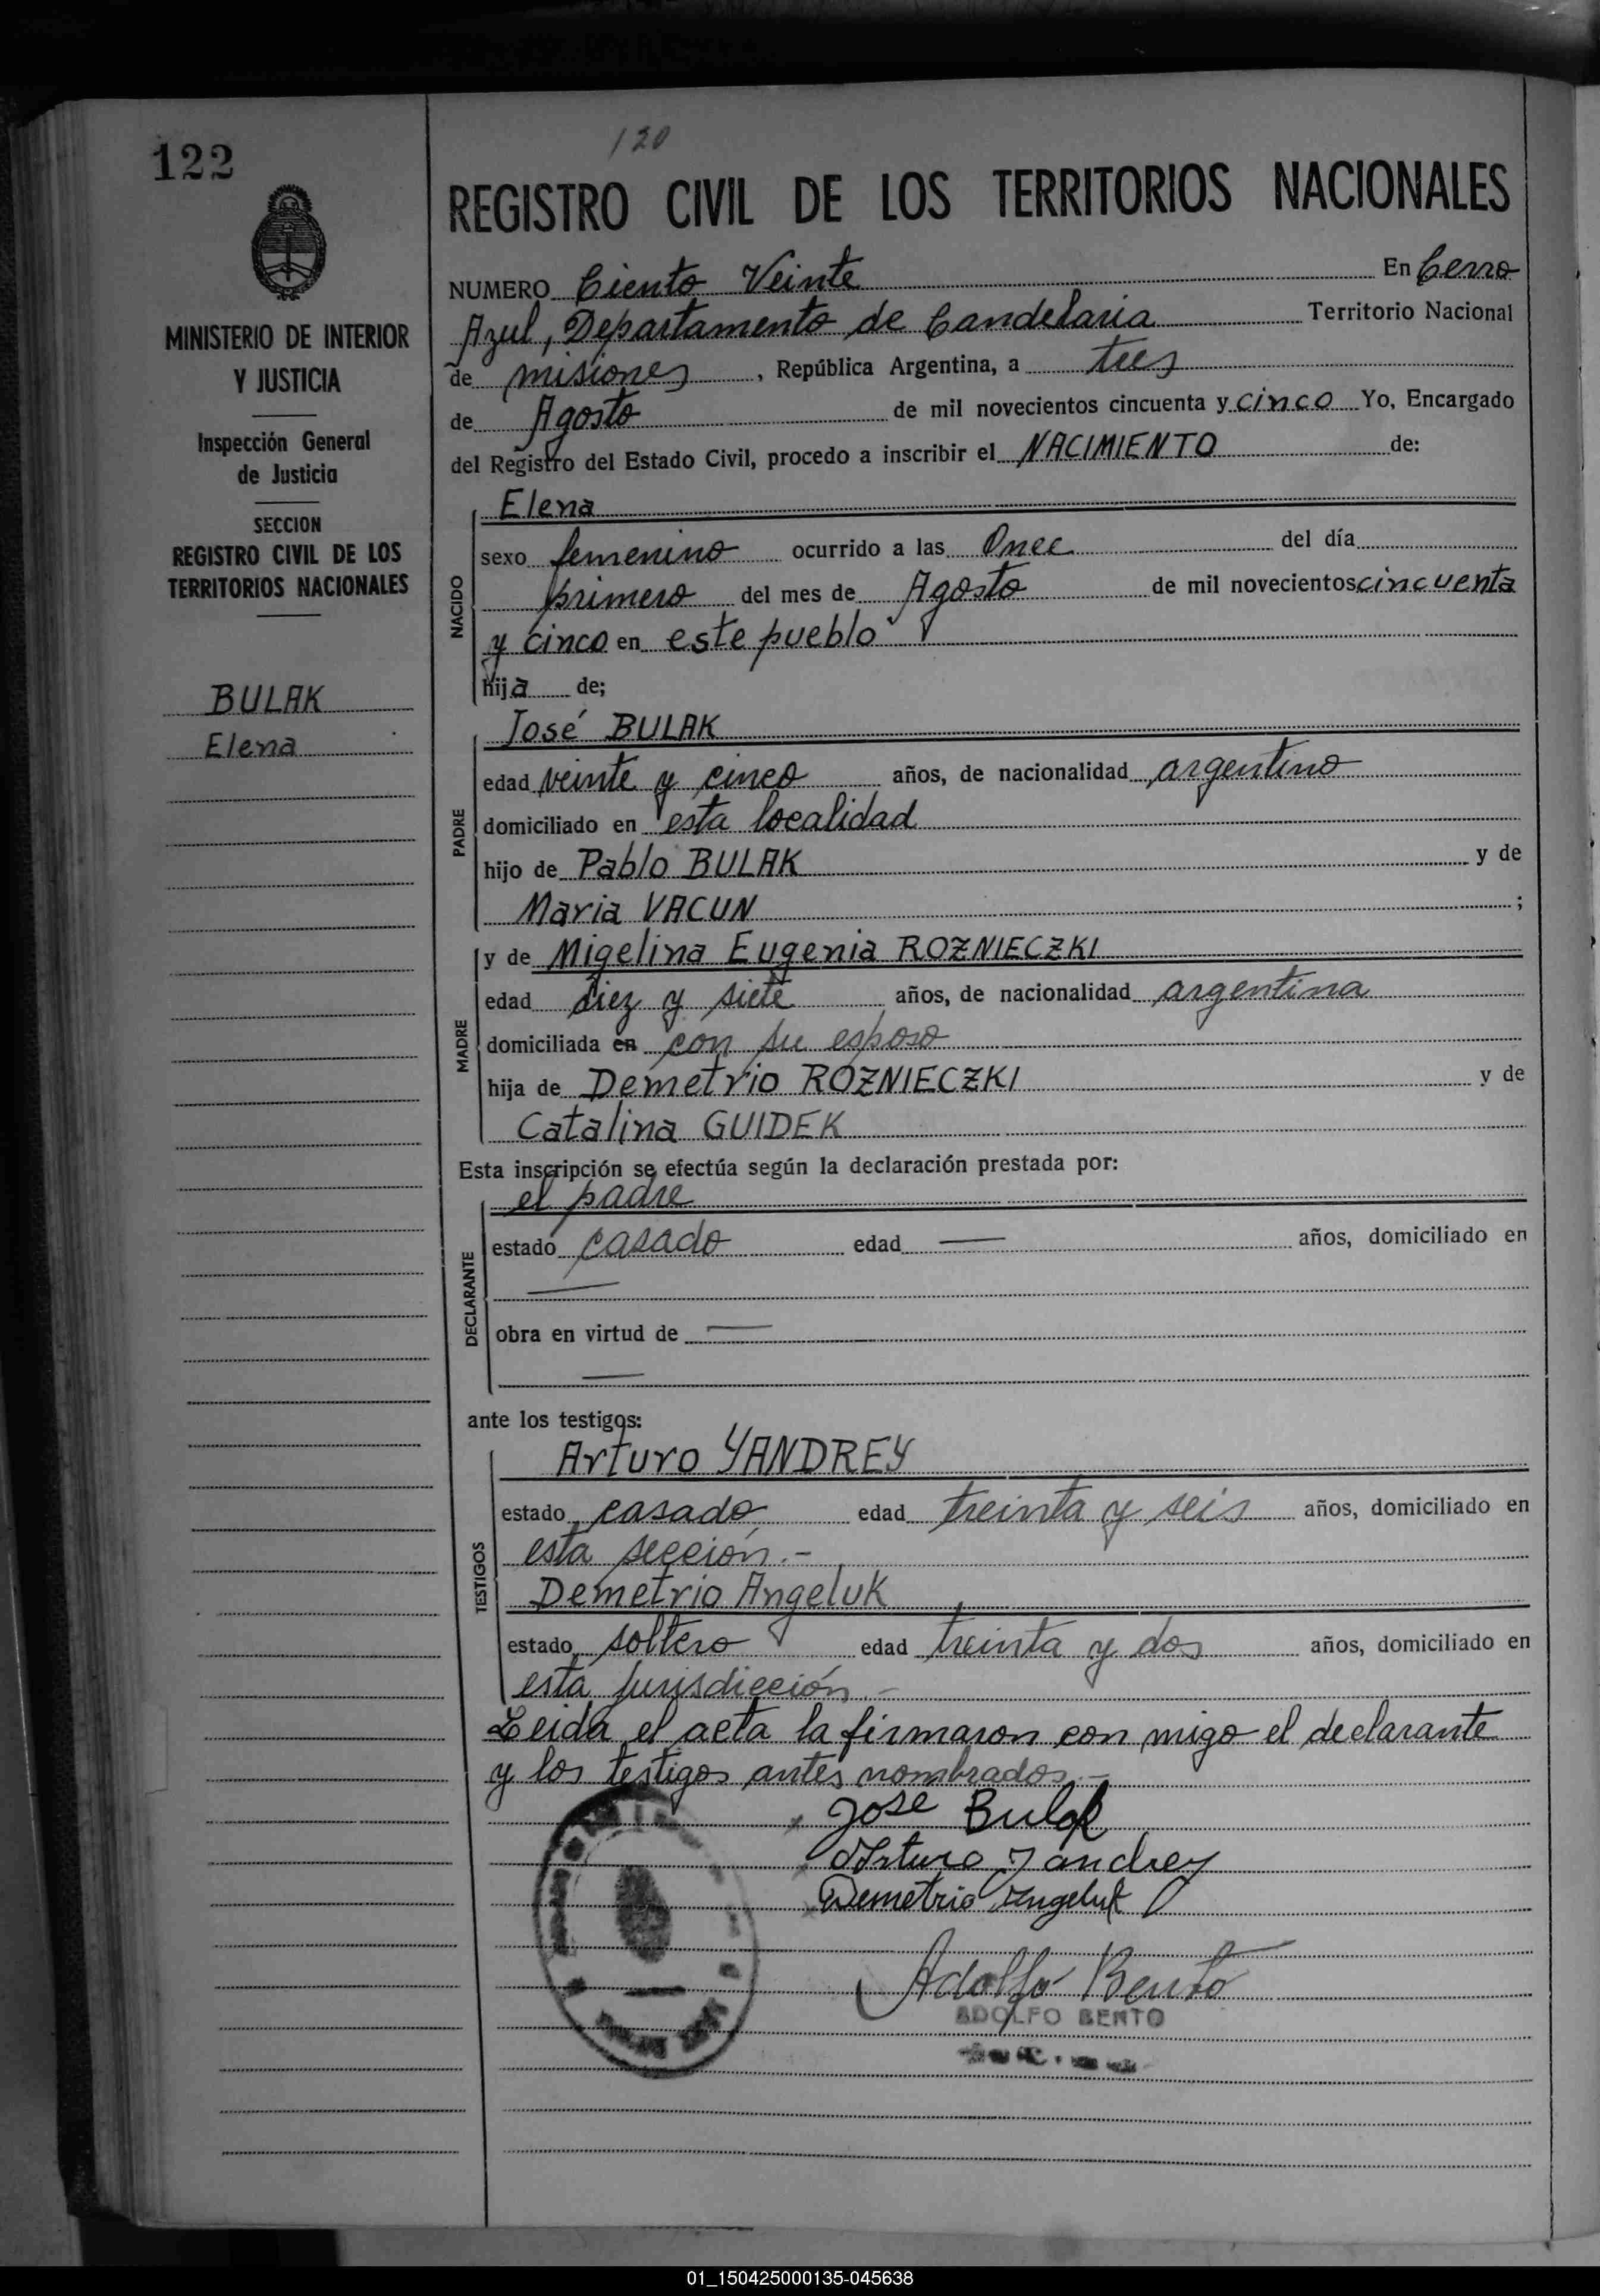 122
120
MINISTERIO DE INTERIOR
Y JUSTICIA
Inspección General
de Justicia
SECCION
REGISTRO CIVIL DE LOS
TERRITORIOS NACIONALES
BULAK
Elena
REGISTRO CIVIL DE LOS TERRITORIOS NACIONALES
NUMERO Ciento Veinte En Cerro
Azul, Departamento de Candelaria Territorio Nacional
de misiones, República Argentina, a tres
de Agosto de mil novecientos cincuenta y cinco Yo, Encargado
del Registro del Estado Civil, procedo a inscribir el NACIMIENTO de:
NACIDO
Elena
sexo femenino ocurrido a las Once del día
primero del mes de Agosto de mil novecientos cincuenta
y cinco en este pueblo
hija de;
PADRE
José BULAK
edad veinte y cinco años, de nacionalidad argentino
domiciliado en esta localidad
hijo de Pablo BULAK y de
Maria VACUN ;
MADRE
y de Migelina Eugenia ROZNIECZKI
edad diez y siete años, de nacionalidad argentina
domiciliada en con su esposo
hija de Demetrio ROZNIECZKI y de
Catalina GUIDEK
Esta inscripción se efectúa según la declaración prestada por:
DECLARANTE
el padre
estado casado edad — años, domiciliado en
—
obra en virtud de —
—
ante los testigos:
TESTIGOS
Arturo YANDREY
estado casado edad treinta y seis años, domiciliado en
esta sección.-
Demetrio Angeluk
estado soltero edad treinta y dos años, domiciliado en
esta jurisdicción.-
Leida el acta la firmaron con migo el declarante
y los testigos antes nombrados.-
Jose Bulak
Arturo Yandrey
Demetrio Angeluk
Adolfo Bento
ADOLFO BENTO
01_150425000135-045638